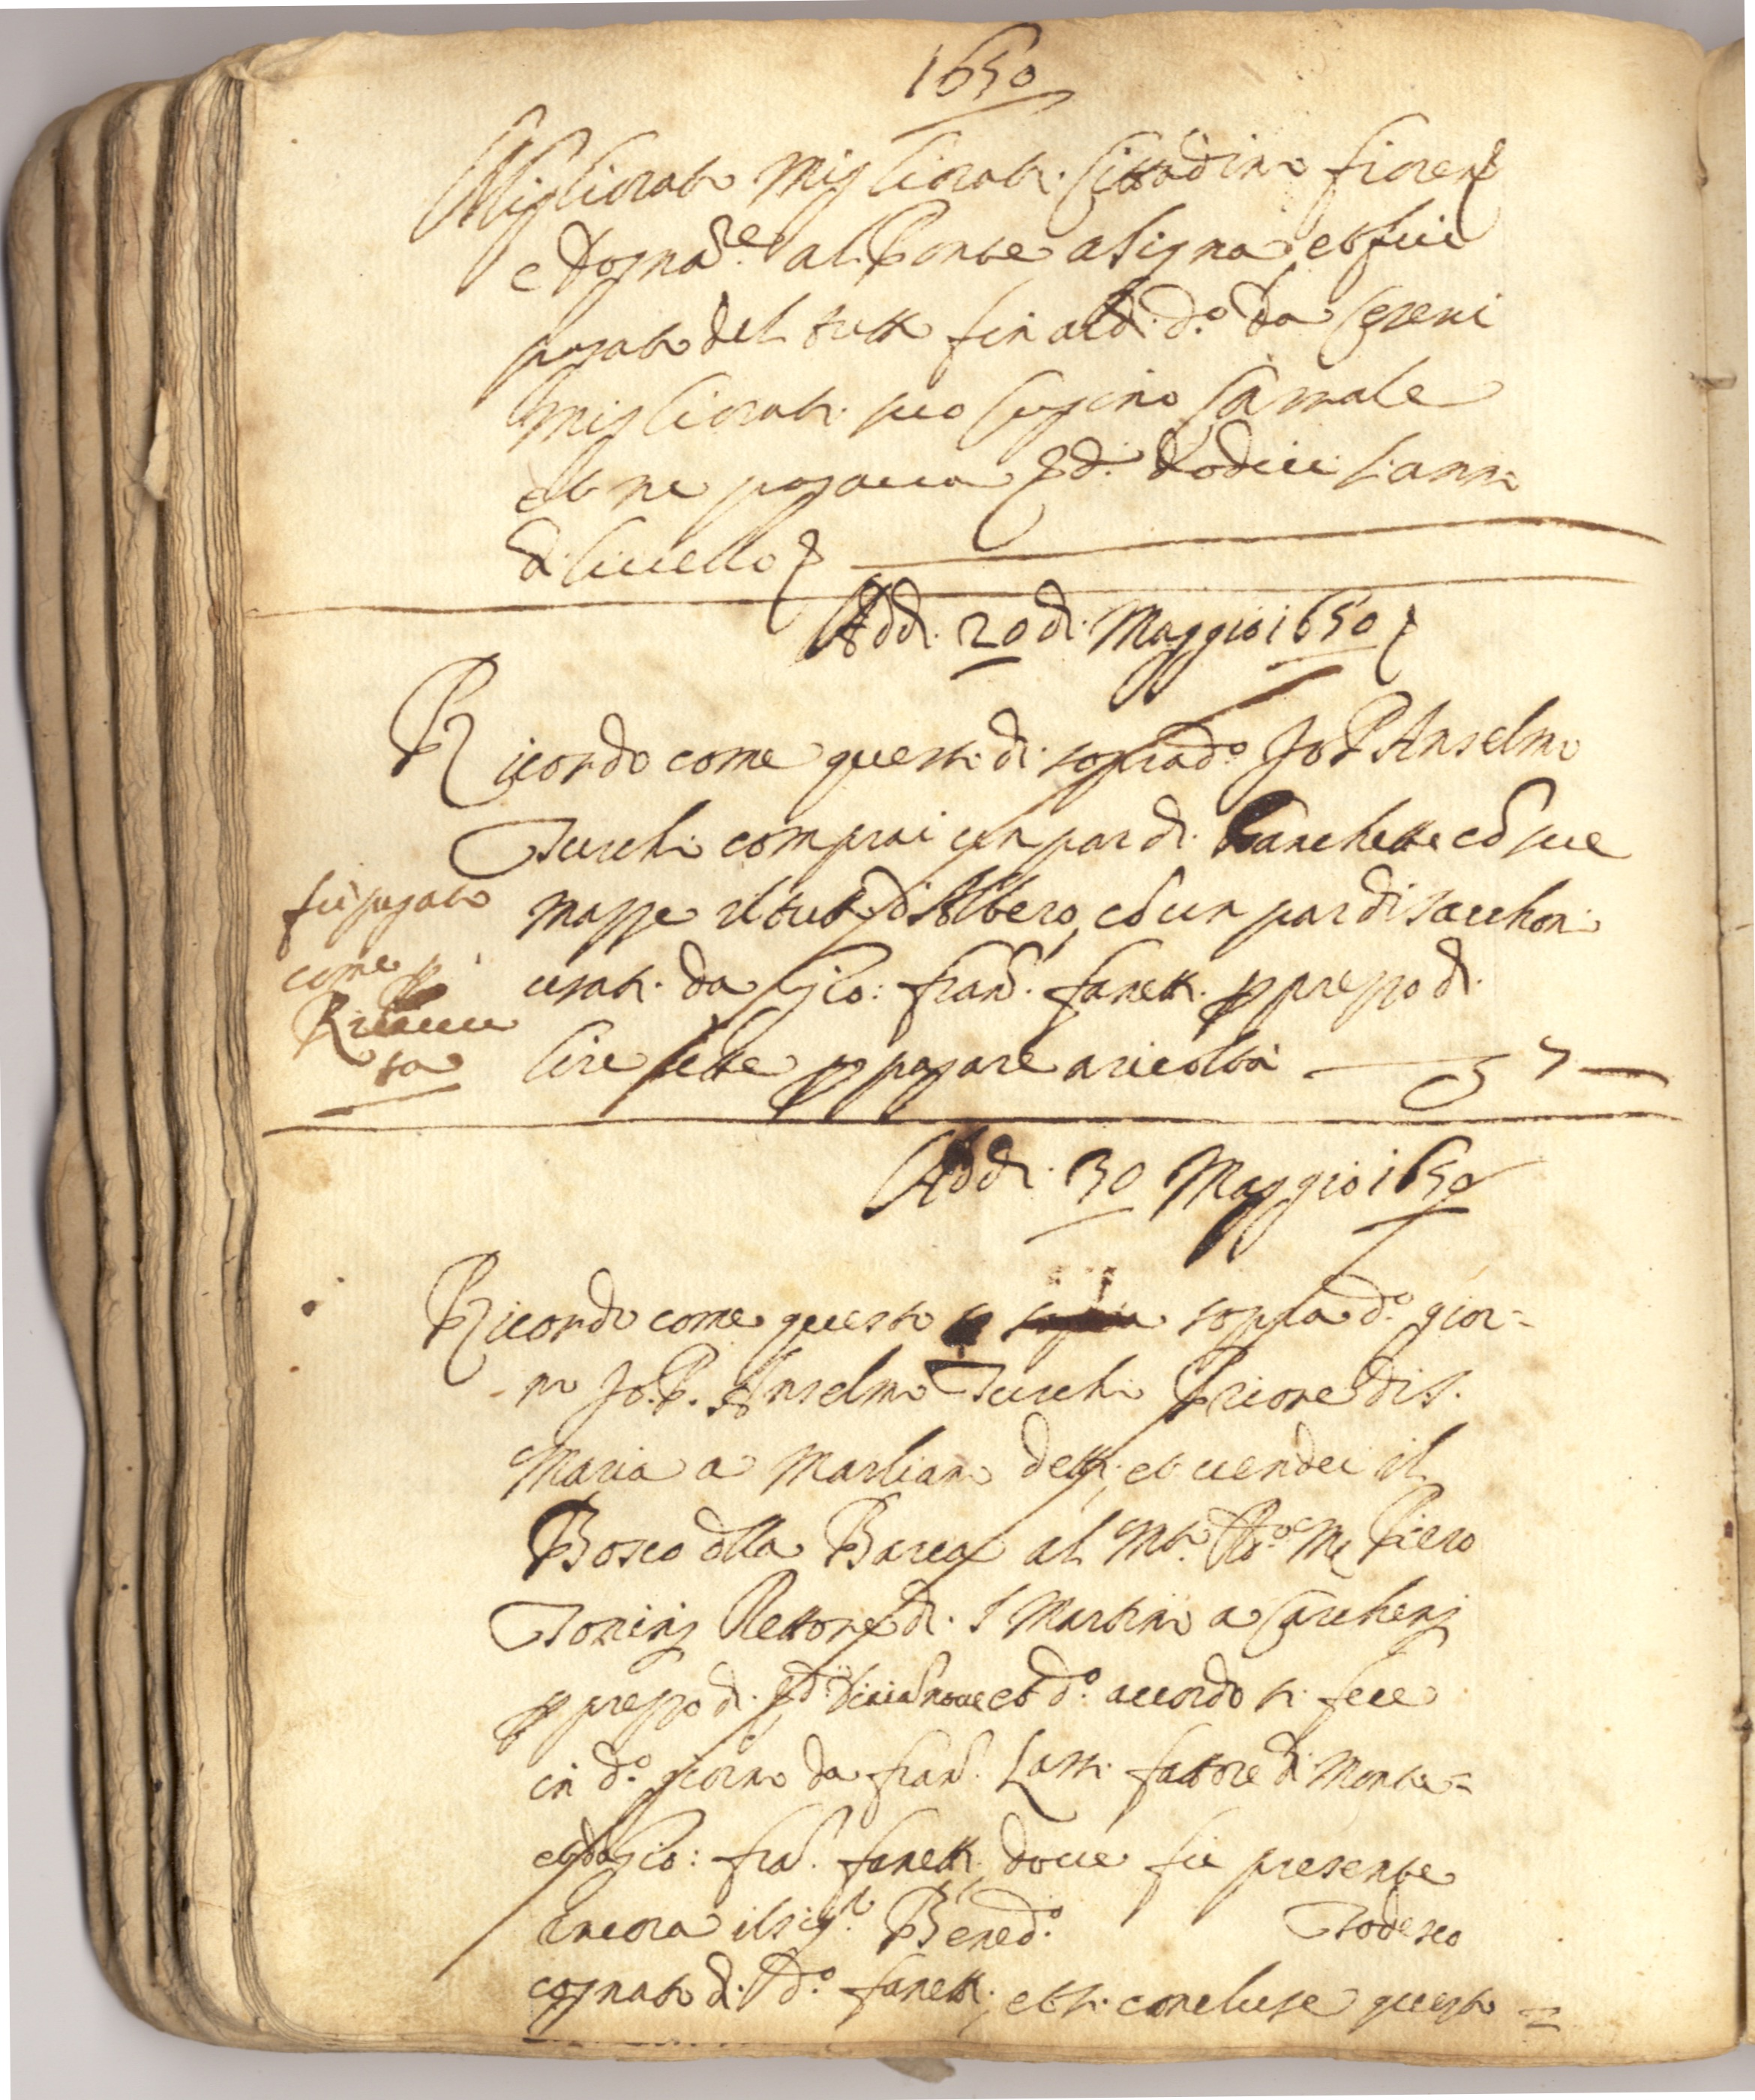 1650
Migliorato Migliorati Cittadino fioren.
e Dogna.re al Ponte a Signa, et fui
pagato del tutto fin al di d.o da
Migliorati suo cugino carnale
et ne pagava dodici l'anno
di livello
Addi. 20 di Maggio 1650
Ricordo come questo di soprad.o Jo P. Anselmo
Turchi comprai un par di Panchette cō sue
mazze il tutto d'Albero, cō un par di sacchoni
usati da Gio: Fran.o Fanetti p prezzo di
lire sette p pagare a ricolta — 7 —
fù pagato
come p
Ricevu
ta
Addi. 30 Maggio 1650
Ricordo come questo sopra d.o gior=
no Jo. P. Anselmo Turchi Priore di S.
Maria a Marliano detti, et vendei il
Bosco dlla Barca al M.to R.do M. Piero
Toninj Rettore di S Martino a Carchenj
p prezzo di et d.o accordo si fece
in d.o giorno da Fran.o Lassi fattore di Monte=
et da Gio: Fra.o Fanetti, dove fu presente
ancora il sig.r Bened.o Todesco
cognato di d.o Fanetti, et si concluse questo =